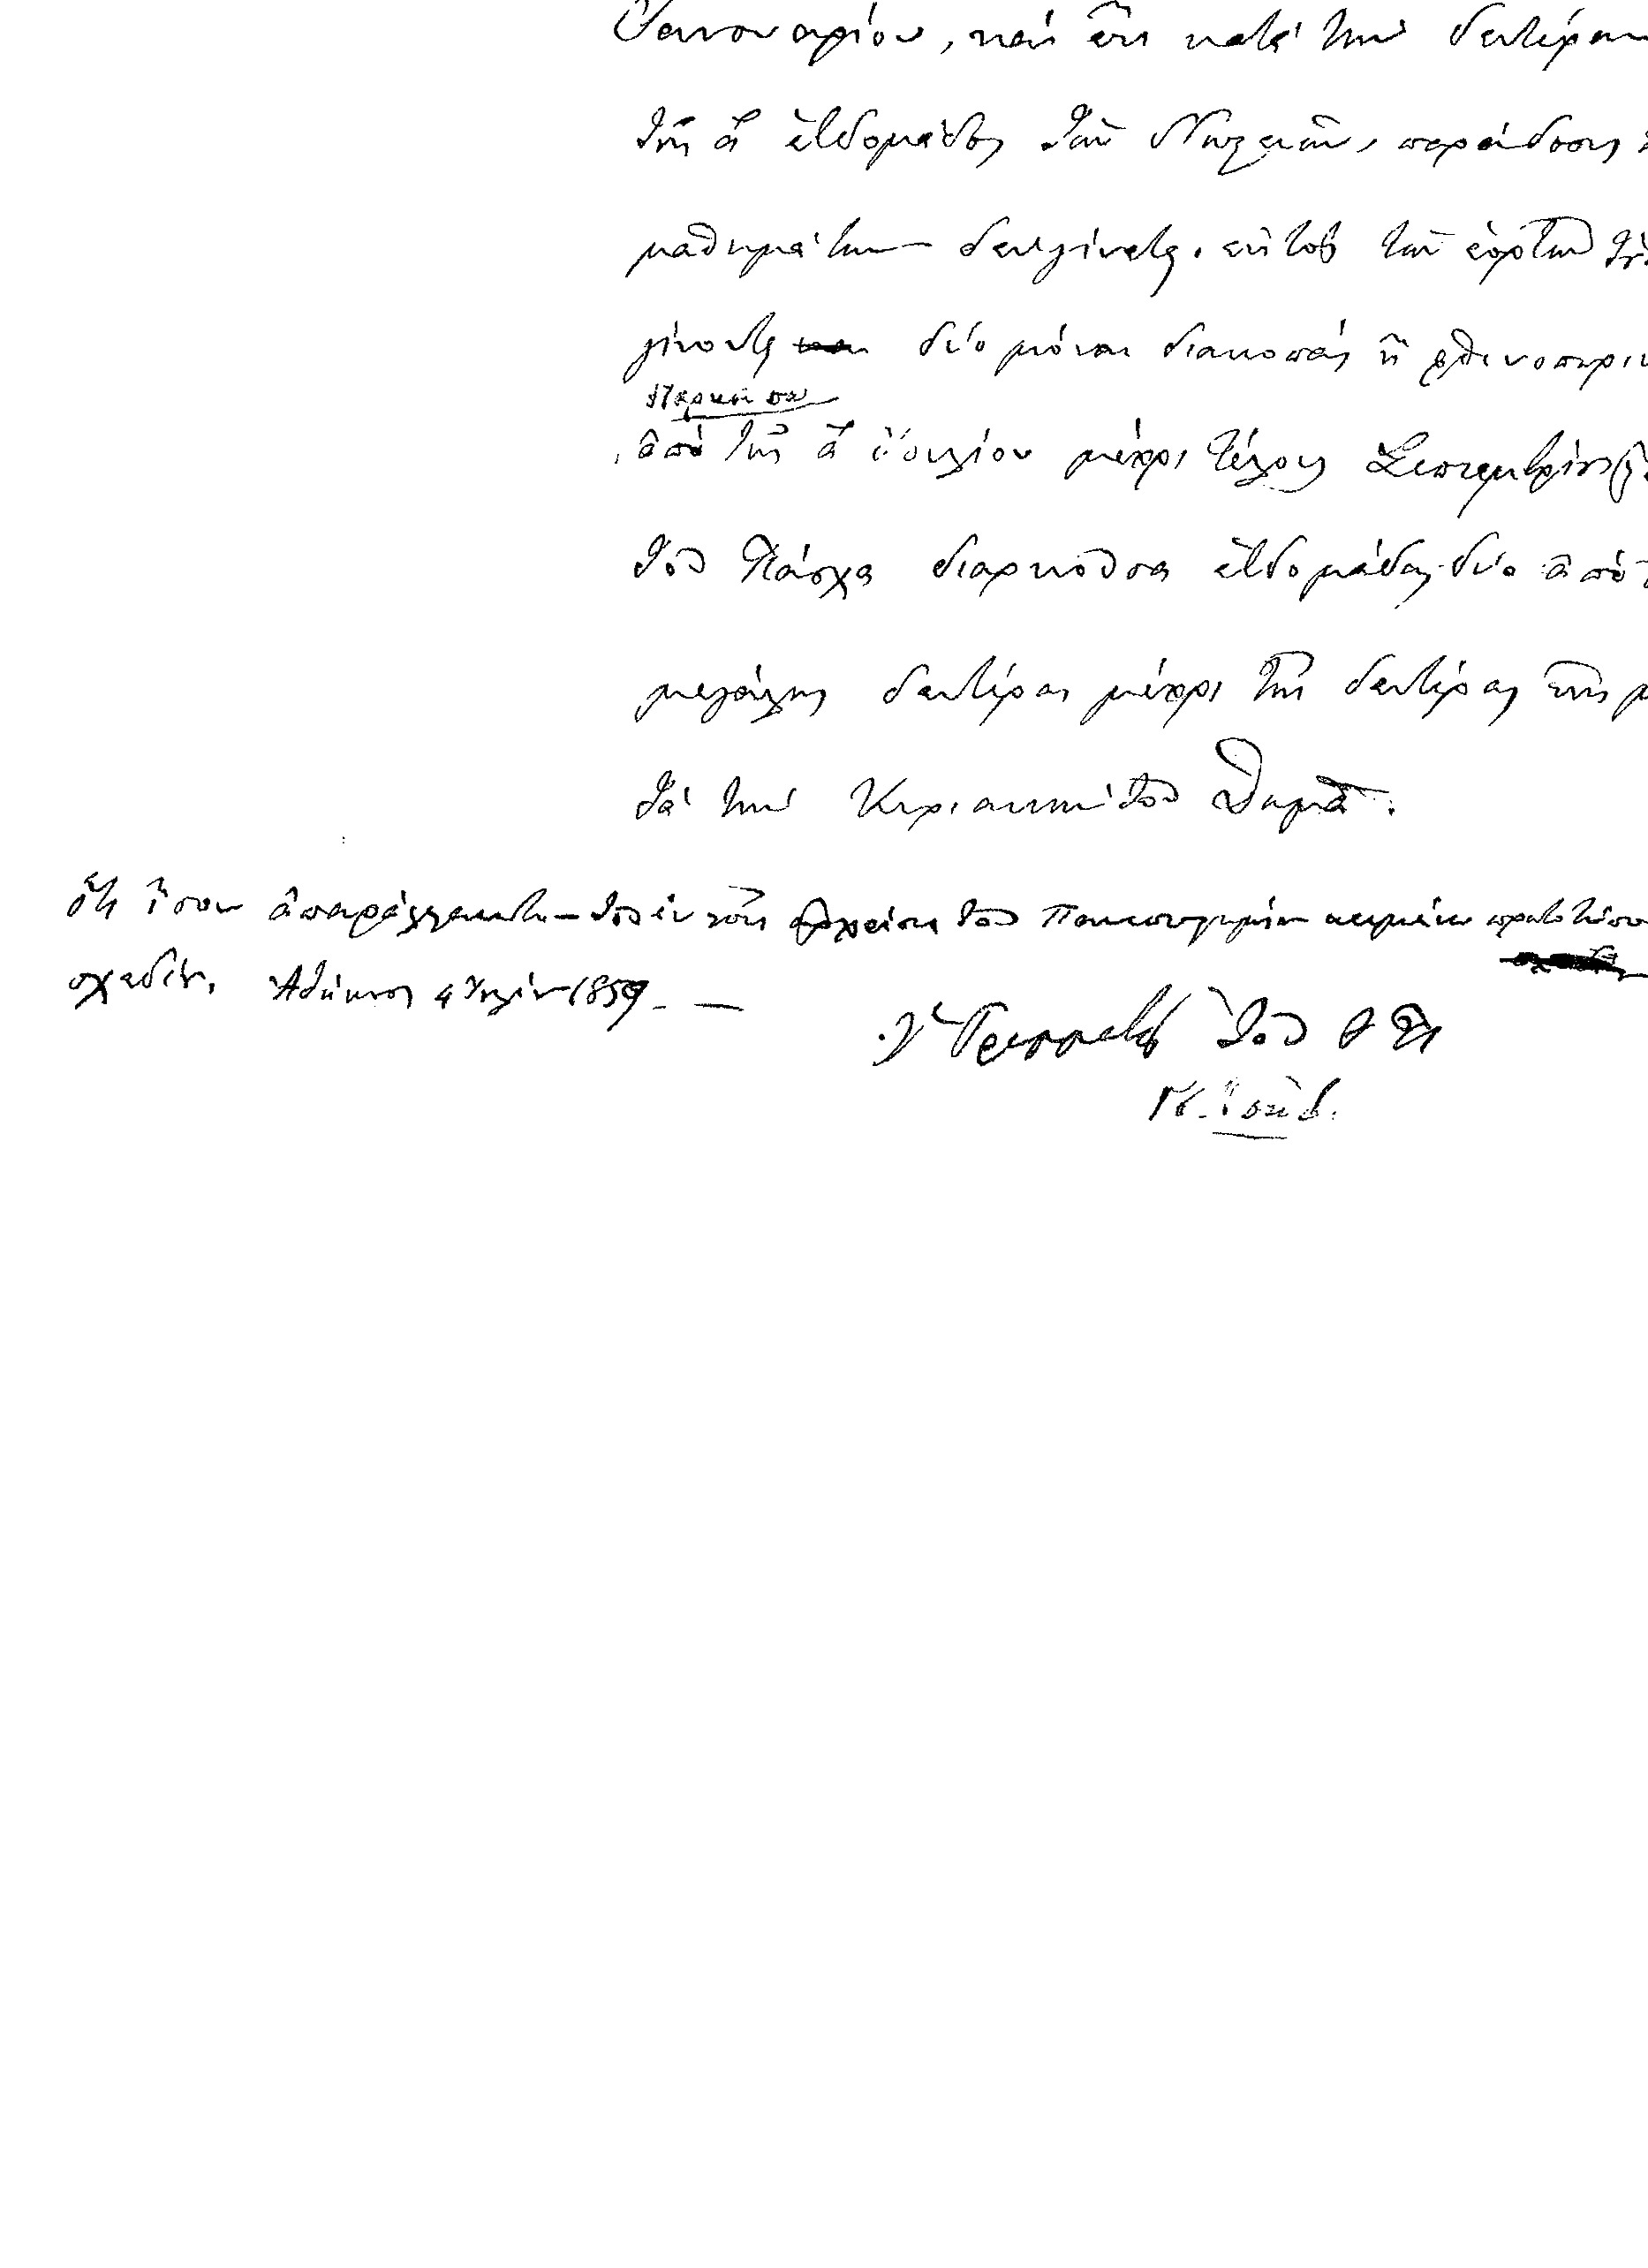 Ἰανουαρίου, καὶ ἔτι κατὰ τὴν δευτέραν
τῆς αʹ ἑβδομάδος τῶν Νηστειῶν, παράδοσις
μαθημάτων δὲν γίνεται. ἐκτὸς τῶν ἑορτῶν
γίνονται δύο μόναι διακοπαὶ ἡ φθινοπωριν
διαρκοῦσα
ἀπὸ τῆς αʹ Ἰουλίου μέχρι τέλους Σεπτεμβρίου
τοῦ Πάσχα διαρκοῦσα ἑβδομάδας δύο ἀπὸ
μεγάλης δευτέρας μέχρι τῆς δευτέρας τῆς μ
τὰ τὴν Κυριακὴν τοῦ Θωμᾶ.
ὅτι ἴσον ἀπαράλλακτον τοῦ ἐν τοῖς ἀρχείοις τοῦ Πανεπιστημίου κειμένου πρωτοτύπου
σχεδίου. Ἀθήνησι 4 Ἰουλίου 1859
Ὁ Γραμματεὺς τοῦ